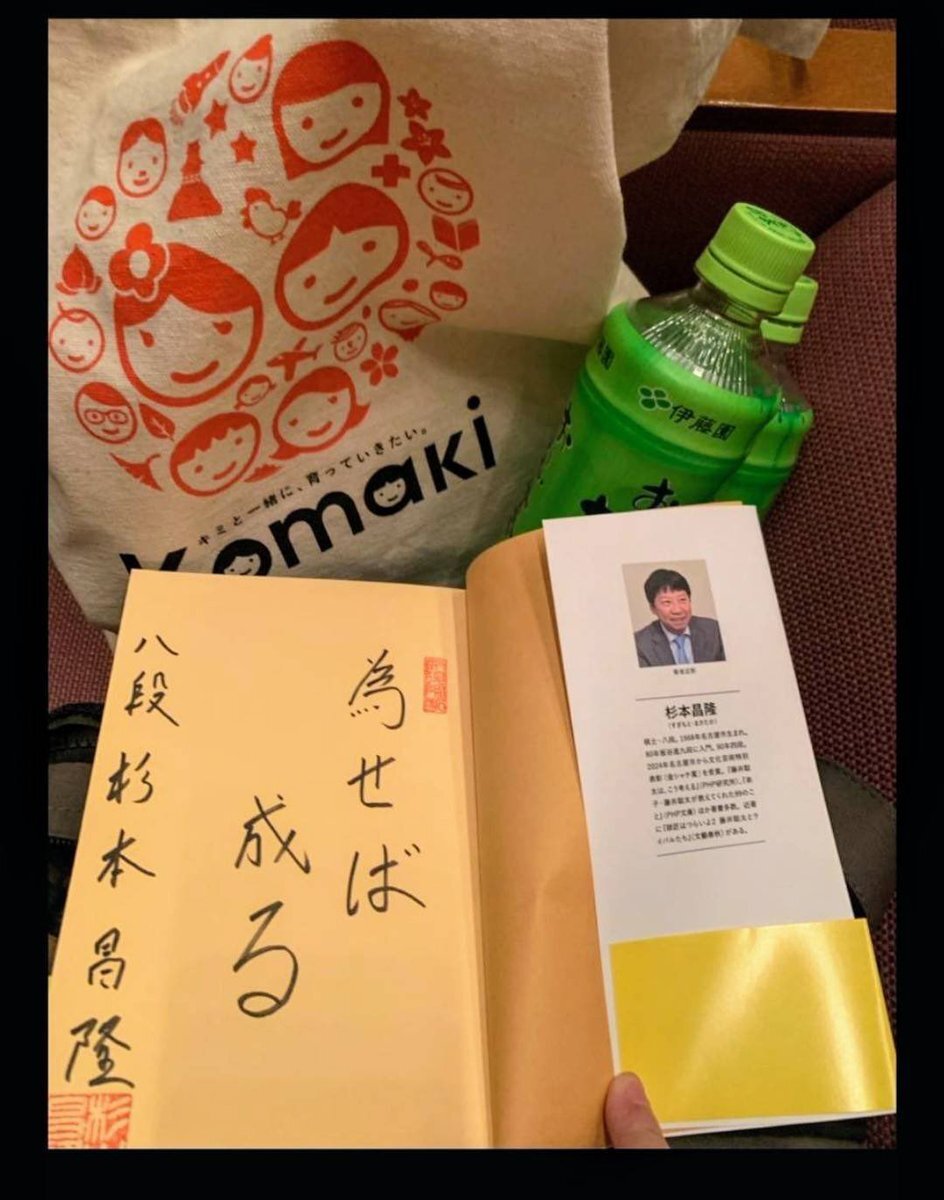 キミと一緒に、育っていきたい。
Komaki
伊藤園
お
為せば
成る
八段 杉本昌隆
杉本昌隆
(すぎもと・まさたか)
棋士・八段。1968年名古屋市生まれ。
80年板谷進九段に入門。90年四段。
2024年名古屋市から文化芸術特別
表彰(金シャチ賞)を受賞。『藤井聡
太は、こう考える』(PHP研究所)、『弟
子・藤井聡太が教えてくれた99のこ
と』(PHP文庫)ほか著書多数。近著
に『師匠はつらいよ2 藤井聡太とラ
イバルたち』(文藝春秋)がある。